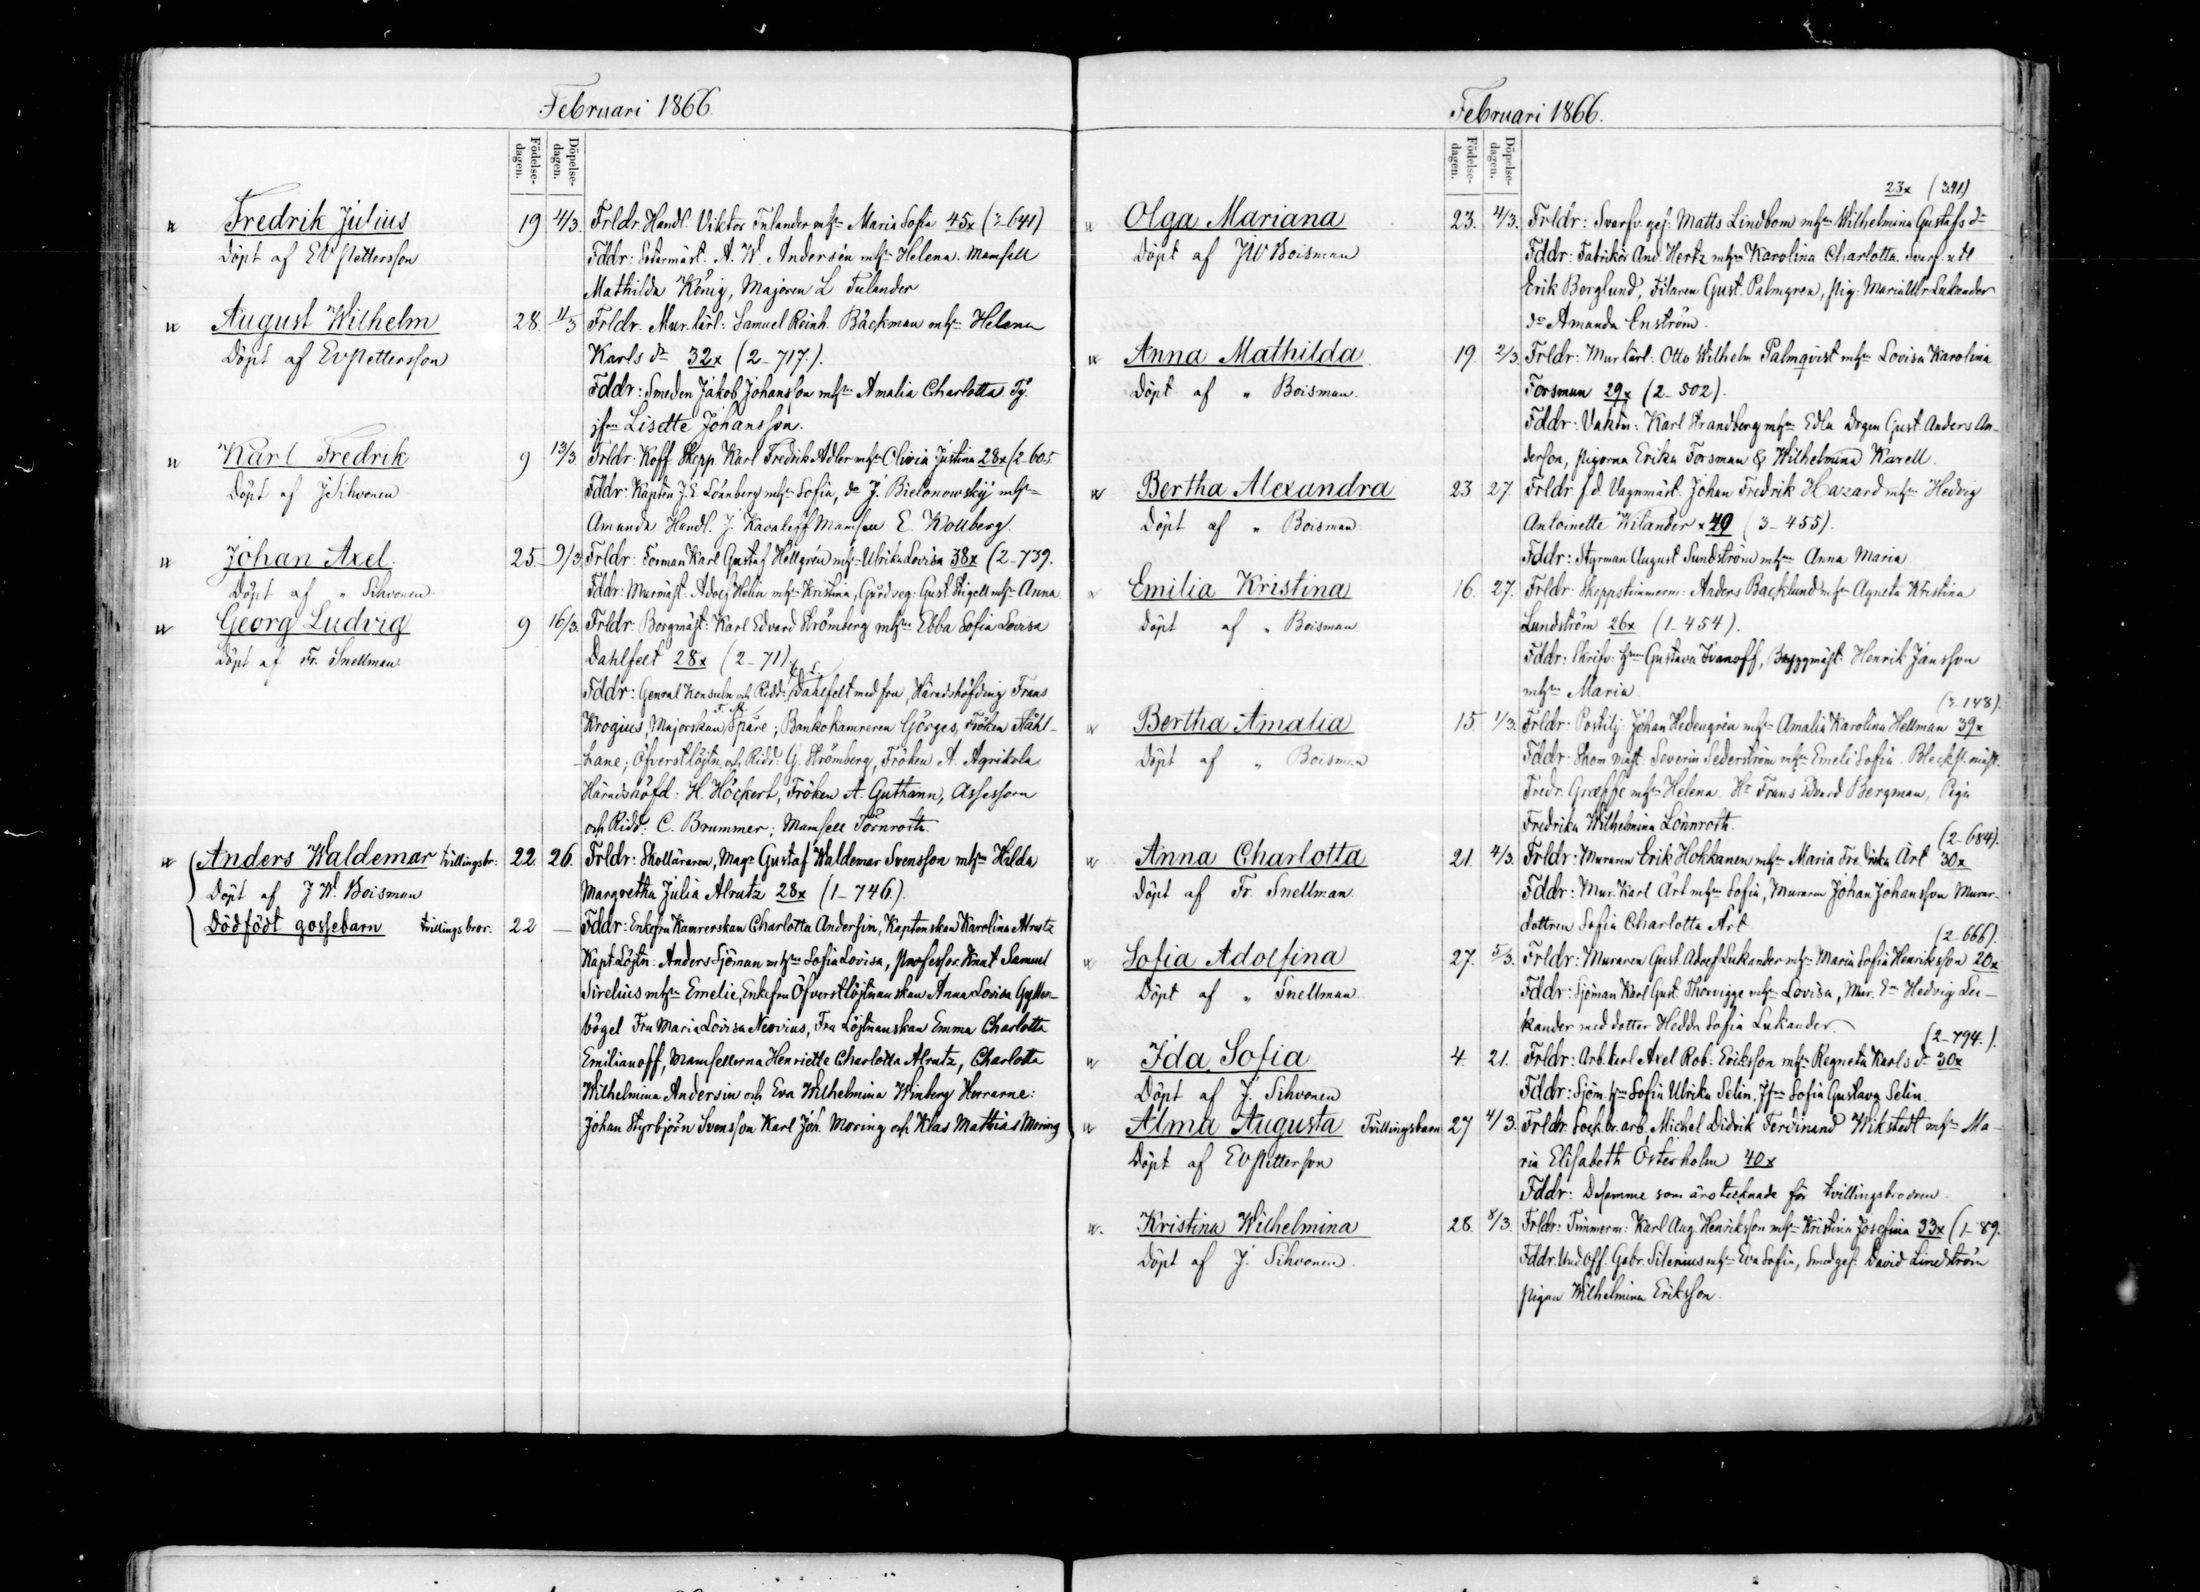 Februari 1866.
Födelse-dagen. Döpelse-dagen.
Fredrik Julius 19 4/3. Frldr. Handl. Viktor Tulander mhn Maria Sofia 45x (2-641)
Döpt af EV Pettersson Fddr: A. W. Andersén mhn Helena. Mamsell
Mathilda König, Majoren L Tulander
August Wilhelm 28. 11/3 Frldr. Mur. kärl: Samuel Reinh. Bäckman mhn Helena
Döpt af EV Pettersson Karls dr 32x (2-717.).
Fddr: Smeden Jakob Johansson mhn Amalia Charlotta
Lisette Johansson.
Karl Fredrik 9 13/3 Frldr: Koff. Skepp. Karl Fredrik Adler mhn Olivia Justina 28x (2-605.
Döpt af J Sihvonen Fddr: Kapten J. E. Lönnberg mhn Sofia, do J. Bielonowskij mhn
Amanda Handl. J. Kavaleff Mamsell E. Kollberg.
Johan Axel. 25. 9/3. Frldr: Forman Karl Gustaf Hellgrén mhn Ulrika Lovisa 38x (2-739.
Döpt af " Sihvonen Fddr: Murmäst. Adolf Helin mhn Kristina, Gårdseg: Gust. Stigell mhn Anna
Georg Ludvig 9 16/3. Frldr: Borgmäst: Karl Edvard Strömberg mhn Ebba Sofia Lovisa
Döpt af Fr. Snellman Dahlfelt 28x (2-71)
Fddr: General Konsuln och Ridd: Dahlfelt med fru, Häradshöfding Frans
Krogius, Majorskan Spåre; Bankokamreren Görges, Fröken Stähl-
hane; Öfverstlöjtn. och Ridd: G. Strömberg, Fröken A. Agrikola
Häradshöfd: H. Höckert, Fröken A. Guthann, Assessorn
och Ridd: C. Brummer; Mamsell Törnroth.
Anders Waldemar tvillingsbr: 22. 26. Frldr: Skolläraren, Magr Gustaf Waldemar Svensson mhn Hilda
Döpt af J W. Boisman Margretha Julia Alrutz 28x (1-746).
Dödfödt gossebarn tvillingsbror. 22 — Fddr: Enkefru Kamrerskan Charlotta Andersin, Kaptenskan Karolina Alrutz
Kapt. Löjtn: Anders Sjöman mhn Sofia Lovisa, Professor Knut Samuel
Sirelius mhn Emelie, Enkefru Öfverstlöjtnanskan Anna Lovisa Gyllen-
bögel Fru Maria Lovisa Neovius, Fru Löjtnanskan Emma Charlotta
Emilianoff, Mamsellerna Henriette Charlotta Alrutz, Charlotta
Wilhelmina Andersin och Eva Wilhelmina Winberg Herrarne:
Johan Styrbjörn Svensson Karl Joh. Moring och Klas Mathias Moring
Februari 1866.
Födelse-dagen. Döpelse-dagen.
23x (391)
Olga Mariana 23. 4/3. Frldr: Svarfv. ges: Matts Lindbom mhn Wilhelmina Gustafs dr
Döpt af JW Boisman Fddr: Fabrikör And. Hertz mhn Karolina Charlotta.
Erik Berglund, Filaren Gust. Palmgren, pig: Maria Lukander
do Amanda Enström.
Anna Mathilda 19. 2/3. Frldr: Murkärl: Otto Wilhelm Palmqvist mhn Lovisa Karolina
Döpt af " Boisman. Forsman 29x (2-502).
Fddr: Vaktm: Karl Strandberg mhn Edla Drgen Gust. Anders An-
derson, pigorna Erika Forsman & Wilhelmina Karell.
Bertha Alexandra 23 27. Frldr f.d. Vagnmäst. Johan Fredrik Hazard mhn Hedvig
Döpt af " Boisman Antoinette Wilander x 40 (3-455).
Fddr: Styrman August Sundström mhn Anna Maria
Emilia Kristina 16. 27. Frldr: Skeppstimmerm: Anders Backlund mhn Agneta Kristina
Döpt af " Boisman Lundström 26x (1-454).
Fddr: Skrifv: Gustava Ivanoff, Bryggmäst: Henrik Jansson
mhn Maria.
(3-148).
Bertha Amalia 15. 1/3. Frldr: Postilj: Johan Hedengrén mhn Amalia Karolina Hellman 39x
Döpt af " Boisman Fddr: Skom. mäst: Severin Sederström mhn Emeli Sofia. Blecksl. mäst.
Fredr. Græffe mhn Helena. Hr Frans Edvard Bergman, Piga
Fredrika Wilhelmina Lönnroth.
(2-684).
Anna Charlotta 21. 4/3. Frldr: Muraren Erik Hokkanen mhn Maria Fredrika Ärt 30x
Döpt af Fr. Snellman Fddr: Mur. Karl Ärt mhn Sofia, Muraren Johan Johansson Murar-
dottren Sofia Charlotta Ärt
(2-666).
Sofia Adolfina 27. 5/3. Frldr: Muraren Gust. Adolf Lukander mhn Maria Sofia Henriksson 20x
Döpt af " Snellman Fddr: Sjöman Karl Gust. Thorvigge mhn Lovisa, Mur. En Hedvig Lu-
kander med dotter Hedda Sofia Lukander.
(2-794.).
Ida Sofia 4. 21. Frldr: Arb. karl Axel Rob: Eriksson mhn Regneta Karls dr 30x
Döpt af J. Sihvonen Fddr: Sjöm. Sofia Ulrika Selin, Sofia Gustava Selin.
Alma Augusta Tvillingsbarn 27 4/3. Frldr: Sock.br. arb. Michel Didrik Ferdinand Wikstedt mhn Ma-
Döpt af EV Petterson ria Elisabeth Österholm 40x
Fddr: Desamme som äro tecknade för tvillingsbrodren.
Kristina Wilhelmina 28. 8/3. Frldr: Timmerm: Karl Aug. Henriksson mhn Kristina Josefina 33x (1-89.
Döpt af J. Sihvonen. Fddr. Und.Off. Gabr. Silenius mhn Eva Sofia, Smedges: David Lindström
pigan Wilhelmina Eriksson.